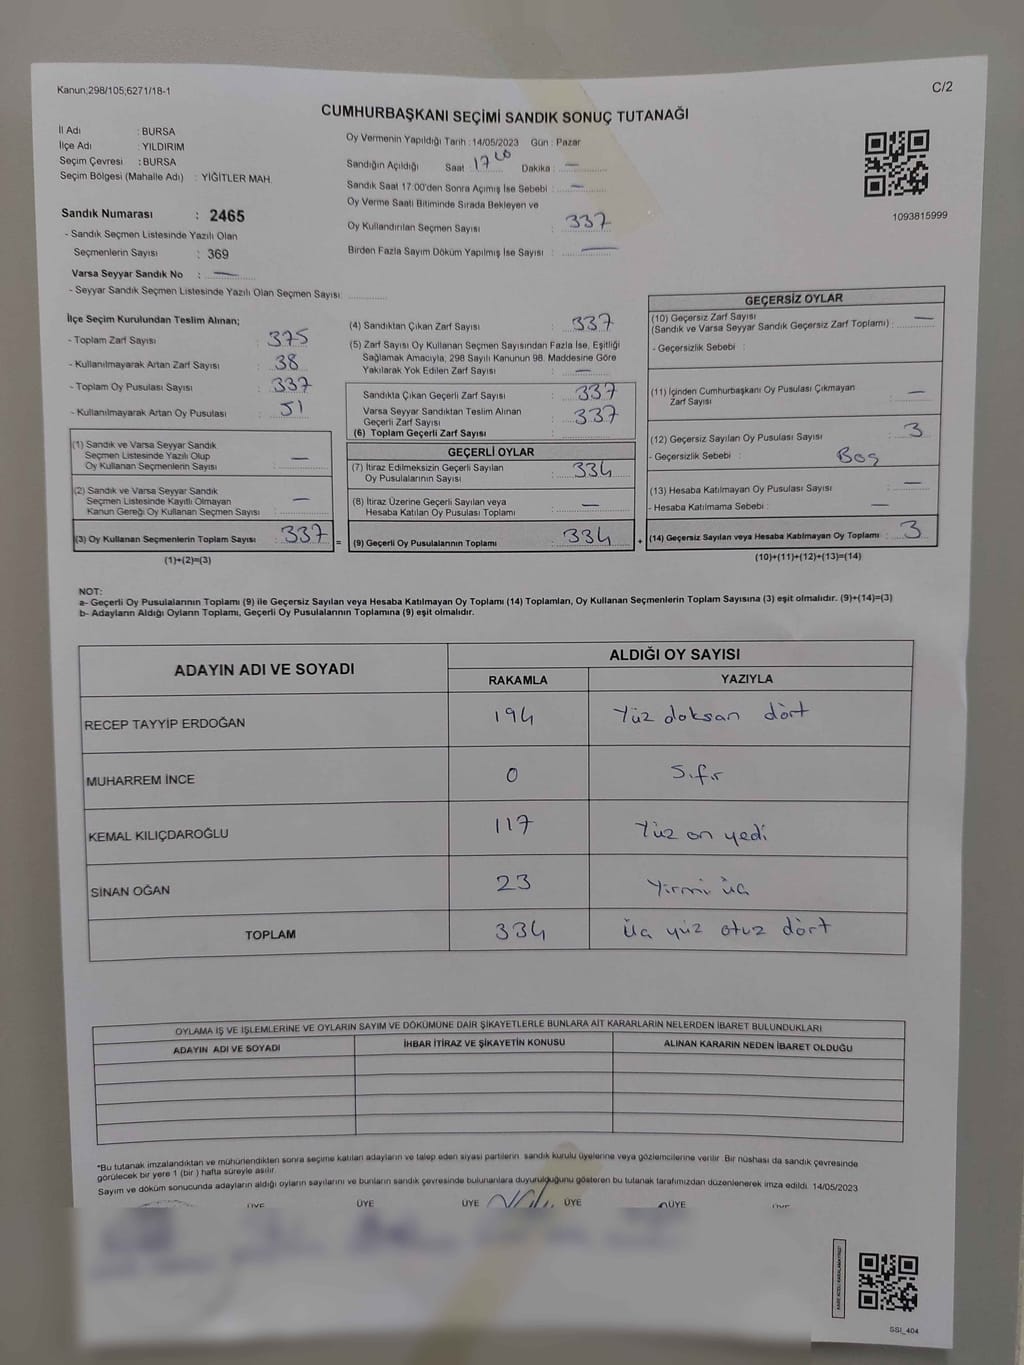 Kanun;298/105;6271/18-1
C/2
CUMHURBAŞKANI SEÇİMİ SANDIK SONUÇ TUTANAĞI
İl Adı : BURSA
İlçe Adı : YILDIRIM
Seçim Çevresi : BURSA
Seçim Bölgesi (Mahalle Adı) : YİĞİTLER MAH.
Sandık Numarası : 2465
- Sandık Seçmen Listesinde Yazılı Olan
Seçmenlerin Sayısı : 369
Varsa Seyyar Sandık No : —
- Seyyar Sandık Seçmen Listesinde Yazılı Olan Seçmen Sayısı:
Oy Vermenin Yapıldığı Tarih : 14/05/2023 Gün : Pazar
Sandığın Açıldığı Saat : 17 00 Dakika : —
Sandık Saat 17:00'den Sonra Açılmış İse Sebebi : —
Oy Verme Saati Bitiminde Sırada Bekleyen ve
Oy Kullandırılan Seçmen Sayısı : 337
Birden Fazla Sayım Döküm Yapılmış İse Sayısı : —
1093815999
İlçe Seçim Kurulundan Teslim Alınan;
- Toplam Zarf Sayısı : 375
- Kullanılmayarak Artan Zarf Sayısı : 38
- Toplam Oy Pusulası Sayısı : 337
- Kullanılmayarak Artan Oy Pusulası : 51
(1) Sandık ve Varsa Seyyar Sandık
Seçmen Listesinde Yazılı Olup
Oy Kullanan Seçmenlerin Sayısı : —
(2) Sandık ve Varsa Seyyar Sandık
Seçmen Listesinde Kayıtlı Olmayan
Kanun Gereği Oy Kullanan Seçmen Sayısı : —
(3) Oy Kullanan Seçmenlerin Toplam Sayısı : 337
(1)+(2)=(3)
=
(4) Sandıktan Çıkan Zarf Sayısı : 337
(5) Zarf Sayısı Oy Kullanan Seçmen Sayısından Fazla İse, Eşitliği
Sağlamak Amacıyla; 298 Sayılı Kanunun 98. Maddesine Göre
Yakılarak Yok Edilen Zarf Sayısı : —
Sandıkta Çıkan Geçerli Zarf Sayısı : 337
Varsa Seyyar Sandıktan Teslim Alınan
Geçerli Zarf Sayısı : 337
(6) Toplam Geçerli Zarf Sayısı :
GEÇERLİ OYLAR
(7) İtiraz Edilmeksizin Geçerli Sayılan
Oy Pusulalarının Sayısı : 334
(8) İtiraz Üzerine Geçerli Sayılan veya
Hesaba Katılan Oy Pusulası Toplamı : —
(9) Geçerli Oy Pusulalarının Toplamı : 334
+
GEÇERSİZ OYLAR
(10) Geçersiz Zarf Sayısı
(Sandık ve Varsa Seyyar Sandık Geçersiz Zarf Toplamı) : —
- Geçersizlik Sebebi :
(11) İçinden Cumhurbaşkanı Oy Pusulası Çıkmayan
Zarf Sayısı : —
(12) Geçersiz Sayılan Oy Pusulası Sayısı : 3
- Geçersizlik Sebebi : Boş
(13) Hesaba Katılmayan Oy Pusulası Sayısı : —
- Hesaba Katılmama Sebebi : —
(14) Geçersiz Sayılan veya Hesaba Katılmayan Oy Toplamı : 3
(10)+(11)+(12)+(13)=(14)
NOT:
a- Geçerli Oy Pusulalarının Toplamı (9) ile Geçersiz Sayılan veya Hesaba Katılmayan Oy Toplamı (14) Toplamları, Oy Kullanan Seçmenlerin Toplam Sayısına (3) eşit olmalıdır. (9)+(14)=(3)
b- Adayların Aldığı Oyların Toplamı, Geçerli Oy Pusulalarının Toplamına (9) eşit olmalıdır.
ADAYIN ADI VE SOYADI
ALDIĞI OY SAYISI
RAKAMLA YAZIYLA
RECEP TAYYİP ERDOĞAN 194 Yüz doksan dört
MUHARREM İNCE 0 Sıfır
KEMAL KILIÇDAROĞLU 117 Yüz on yedi
SİNAN OĞAN 23 Yirmi üç
TOPLAM 334 üç yüz otuz dört
OYLAMA İŞ VE İŞLEMLERİNE VE OYLARIN SAYIM VE DÖKÜMÜNE DAİR ŞİKAYETLERLE BUNLARA AİT KARARLARIN NELERDEN İBARET BULUNDUKLARI
ADAYIN ADI VE SOYADI İHBAR İTİRAZ VE ŞİKAYETİN KONUSU ALINAN KARARIN NEDEN İBARET OLDUĞU
*Bu tutanak imzalandıktan ve mühürlendikten sonra seçime katılan adayların ve talep eden siyasi partilerin sandık kurulu üyelerine veya gözlemcilerine verilir. Bir nüshası da sandık çevresinde
görülecek bir yere 1 (bir) hafta süreyle asılır.
Sayım ve döküm sonucunda adayların aldığı oyların sayılarını ve bunların sandık çevresinde bulunanlara duyurulduğunu gösteren bu tutanak tarafımızdan düzenlenerek imza edildi. 14/05/2023
ÜYE ÜYE ÜYE ÜYE ÜYE ÜYE
SSI_404